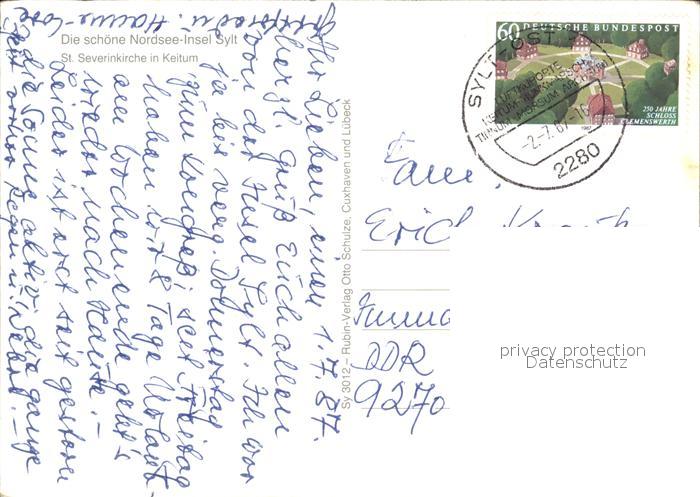 Die schöne Nordsee-Insel Sylt
St. Severinkirche in Keitum
1.7.87.
Ihr Lieben, einen
herzl. Gruß Euch allen
von der Insel Sylt. Ich war
ja bis verg. Donnerstag
zum Kongreß, seit Freitag
haben wir 8 Tage Urlaub
am Wochenende geht's
wieder nach Hause.-
Leider ist erst seit gestern
die Sonne aktiv, die ganze
Zeit vorher Regen u. Nebel.-
u. Hanne-Lore
Sy 3012 – Rubin-Verlag Otto Schulze, Cuxhaven und Lübeck
60 DEUTSCHE BUNDESPOST
250 JAHRE
SCHLOSS
CLEMENSWERTH
1987
SYLT-OST
-2.-7.87-16
2280
Fam.
Erich
DDR
9270
privacy protection
Datenschutz